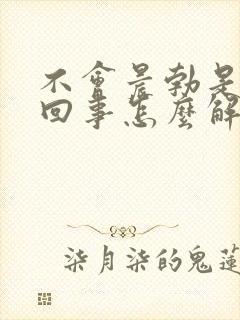 不會晨勃是
回事怎麼解
柒月柒的鬼蓮